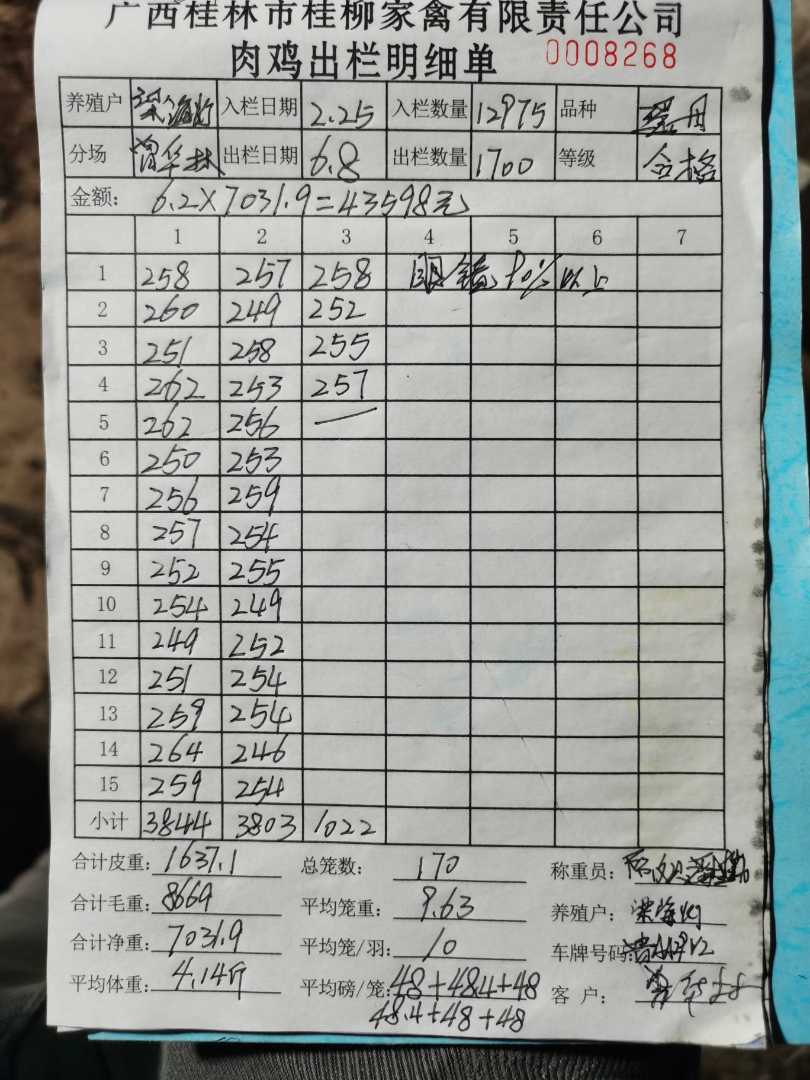 广西桂林市桂柳家禽有限责任公司
肉鸡出栏明细单 0008268
养殖户 梁海灯 入栏日期 2.25 入栏数量 12975 品种
分场 出栏日期 6.8 出栏数量 1700 等级 合格
金额: 6.2×7031.9=43598元
1 2 3 4 5 6 7
1 258 257 258 眼镜90%以上
2 260 249 252
3 251 258 255
4 262 253 257
5 262 256 —
6 250 253
7 256 259
8 257 254
9 252 255
10 254 249
11 249 252
12 251 254
13 259 254
14 264 246
15 259 254
小计 3844 3803 1022
合计皮重: 1637.1 总笼数: 170 称重员:
合计毛重: 8669 平均笼重: 9.63 养殖户: 梁海灯
合计净重: 7031.9 平均笼/羽: 10 车牌号码:
平均体重: 4.14斤 平均磅/笼: 48+48.4+48 客户:
48.4+48+48